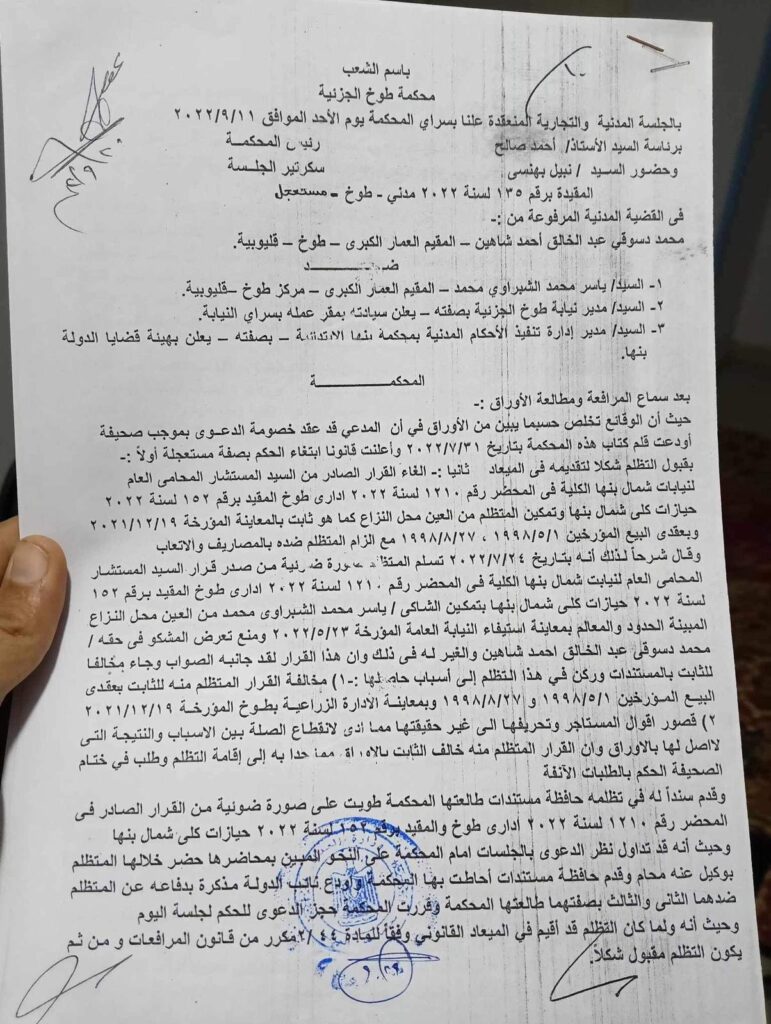 باسم الشعب
محكمة طوخ الجزئية
بالجلسة المدنية والتجارية المنعقدة علنا بسراي المحكمة يوم الأحد الموافق ٢٠٢٢/٩/١١
برئاسة السيد الأستاذ/ أحمد صالح رئيس المحكمة
وحضور السيد / نبيل بهنسى سكرتير الجلسة
المقيدة برقم ١٣٥ لسنة ٢٠٢٢ مدني - طوخ - مستعجل
فى القضية المدنية المرفوعة من :-
محمد دسوقي عبد الخالق أحمد شاهين – المقيم العمار الكبرى – طوخ – قليوبية.
ضد
١- السيد/ ياسر محمد الشبراوي محمد – المقيم العمار الكبرى – مركز طوخ –قليوبية.
٢- السيد/ مدير نيابة طوخ الجزئية بصفته – يعلن سيادته بمقر عمله بسراي النيابة.
٣- السيد/ مدير إدارة تنفيذ الأحكام المدنية بمحكمة بنها الابتدائية – بصفته – يعلن بهيئة قضايا الدولة
بنها.
المحكمة
بعد سماع المرافعة ومطالعة الأوراق :-
حيث أن الوقائع تخلص حسبما يبين من الأوراق في أن المدعي قد عقد خصومة الدعوى بموجب صحيفة
أودعت قلم كتاب هذه المحكمة بتاريخ ٢٠٢٢/٧/٣١ وأعلنت قانونا ابتغاء الحكم بصفة مستعجلة أولاً :-
بقبول التظلم شكلا لتقديمه فى الميعاد ثانيا :- الغاء القرار الصادر من السيد المستشار المحامى العام
لنيابات شمال بنها الكلية فى المحضر رقم ١٢١٠ لسنة ٢٠٢٢ ادارى طوخ المقيد برقم ١٥٢ لسنة ٢٠٢٢
حيازات كلى شمال بنها وتمكين المتظلم من العين محل النزاع كما هو ثابت بالمعاينة المؤرخة ٢٠٢١/١٢/١٩
وبعقدى البيع المؤرخين ١٩٩٨/٥/١ ، ١٩٩٨/٨/٢٧ مع الزام المتظلم ضده بالمصاريف والاتعاب
وقال شرحاً لذلك أنه بتاريخ ٢٠٢٢/٧/٢٤ تسلم المتظلم صورة ضوئية من صدر قرار السيد المستشار
المحامى العام لنيابت شمال بنها الكلية فى المحضر رقم ١٢١٠ لسنة ٢٠٢٢ ادارى طوخ المقيد برقم ١٥٢
لسنة ٢٠٢٢ حيازات كلى شمال بنها بتمكين الشاكى / ياسر محمد الشبراوى محمد من العين محل النزاع
المبينة الحدود والمعالم بمعاينة استيفاء النيابة العامة المؤرخة ٢٠٢٢/٥/٢٣ ومنع تعرض المشكو فى حقه /
محمد دسوقى عبد الخالق احمد شاهين والغير له فى ذلك وان هذا القرار لقد جانبه الصواب وجاء مخالفا
للثابت بالمستندات وركن في هذا التظلم إلى أسباب حاصلها :-١) مخالفة القرار المتظلم منه للثابت بعقدى
البيع المؤرخين ١٩٩٨/٥/١ و ١٩٩٨/٨/٢٧ وبمعاينة الادارة الزراعية بطوخ المؤرخة ٢٠٢١/١٢/١٩
٢) قصور اقوال المستاجر وتحريفها الى غير حقيقتها مما أدى لانقطاع الصلة بين الاسباب والنتيجة التى
لااصل لها بالاوراق وان القرار المتظلم منه خالف الثابت بالاوراق مما حدا به إلى إقامة التظلم وطلب في ختام
الصحيفة الحكم بالطلبات الآنفة
وقدم سنداً له في تظلمه حافظة مستندات طالعتها المحكمة طويت على صورة ضوئية من القرار الصادر فى
المحضر رقم ١٢١٠ لسنة ٢٠٢٢ ادارى طوخ والمقيد برقم ١٥٢ لسنة ٢٠٢٢ حيازات كلى شمال بنها
وحيث أنه قد تداول نظر الدعوى بالجلسات امام المحكمة على النحو المبين بمحاضرها حضر خلالها المتظلم
بوكيل عنه محام وقدم حافظة مستندات أحاطت بها المحكمة وأودع نائب الدولة مذكرة بدفاعه عن المتظلم
ضدهما الثانى والثالث بصفتهما طالعتها المحكمة وقررت المحكمة حجز الدعوى للحكم لجلسة اليوم
وحيث أنه ولما كان التظلم قد أقيم في الميعاد القانوني وفقاً للمادة ٢/٤٤ مكرر من قانون المرافعات و من ثم
يكون التظلم مقبول شكلاً.